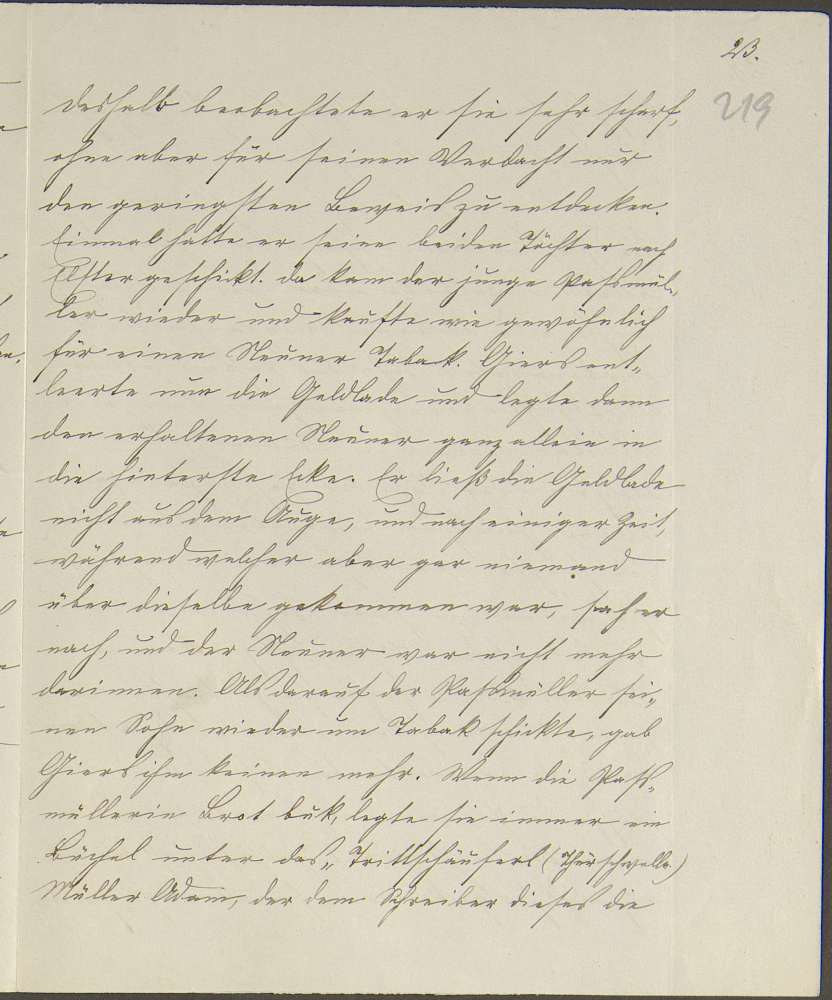 23.
219
deshalb beobachtete er sie sehr scharf,
ohne aber für seinen Verdacht nur
den geringsten Beweis zu entdecken.
Einmal hatte er seine beiden Töchter nach
Elster geschickt. da kam der junge Passmül-
ler wieder und kaufte wie gewöhnlich
für einen Neuner Tabak. Giers ent-
leerte nun die Geldlade und legte dann
den erhaltenen Neuner ganz allein in
die hinterste Ecke. Er ließ die Geldlade
nicht aus dem Auge, und nach einiger Zeit,
während welcher aber gar niemand
über dieselbe gekommen war, sah er
nach, und der Neuner war nicht mehr
darinnen. Als darauf der Passmüller sei-
nen Sohn wieder um Tabak schickte, gab
Giers ihm keinen mehr. Wenn die Pass-
müllerin Brot buk, legte sie immer ein
Büchel unter das „Trittschäuferl (Thürschwelle.)
Müller Adam, der dem Schreiber dieses die